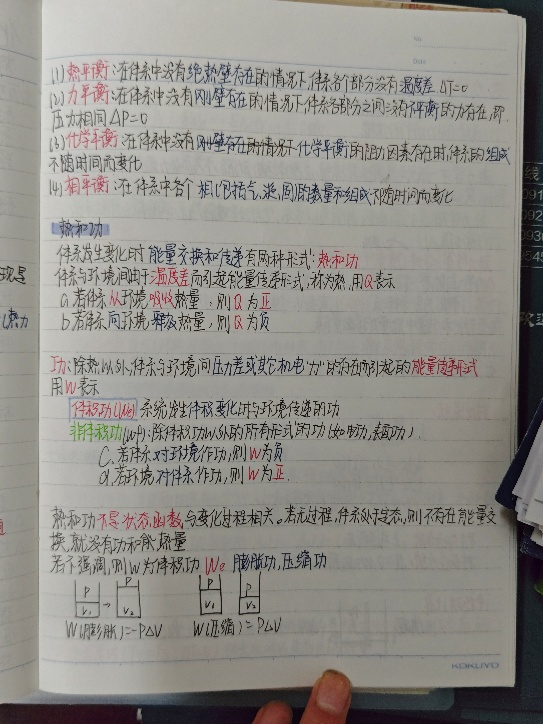 (1) 热平衡:在体系中没有绝热壁存在的情况下,体系各个部分没有温度差 ΔT=0
(2) 力平衡:在体系中没有刚壁存在的情况下,体系各部分之间没有不平衡的力存在,即
压力相同 ΔP=0
(3) 化学平衡:在体系中没有刚壁存在的情况下 化学平衡的阻力因素存在时,体系的组成
不随时间而变化
(4) 相平衡:在体系中各个相(包括气、液、固)的数量和组成不随时间而变化
热和功
体系发生变化时能量交换和传递有两种形式:热和功
体系与环境间由于温度差而引起能量传递形式,称为热,用Q表示
a.若体系从环境吸收热量,则Q为正
b.若体系向环境释放热量,则Q为负
功:除热以外,体系与环境间压力差或其它机电"力"的存在而引起的能量传递形式
用W表示
体积功(We) 系统发生体积变化时与环境传递的功
非体积功(Wf):除体积功以外的所有形式的功(如电功,表面功)
C.若体系对环境作功,则W为负
d.若环境对体系作功,则W为正.
热和功不是状态函数,与变化过程相关。若无过程,体系处于定态,则不存在有能量交
换,就没有功和热量
若不强调,则W为体积功 We 膨胀功,压缩功
P P P P
V₁ → V₂ V₁ V₂
W(膨胀)=-PΔV W(压缩)=PΔV
KOKUYO